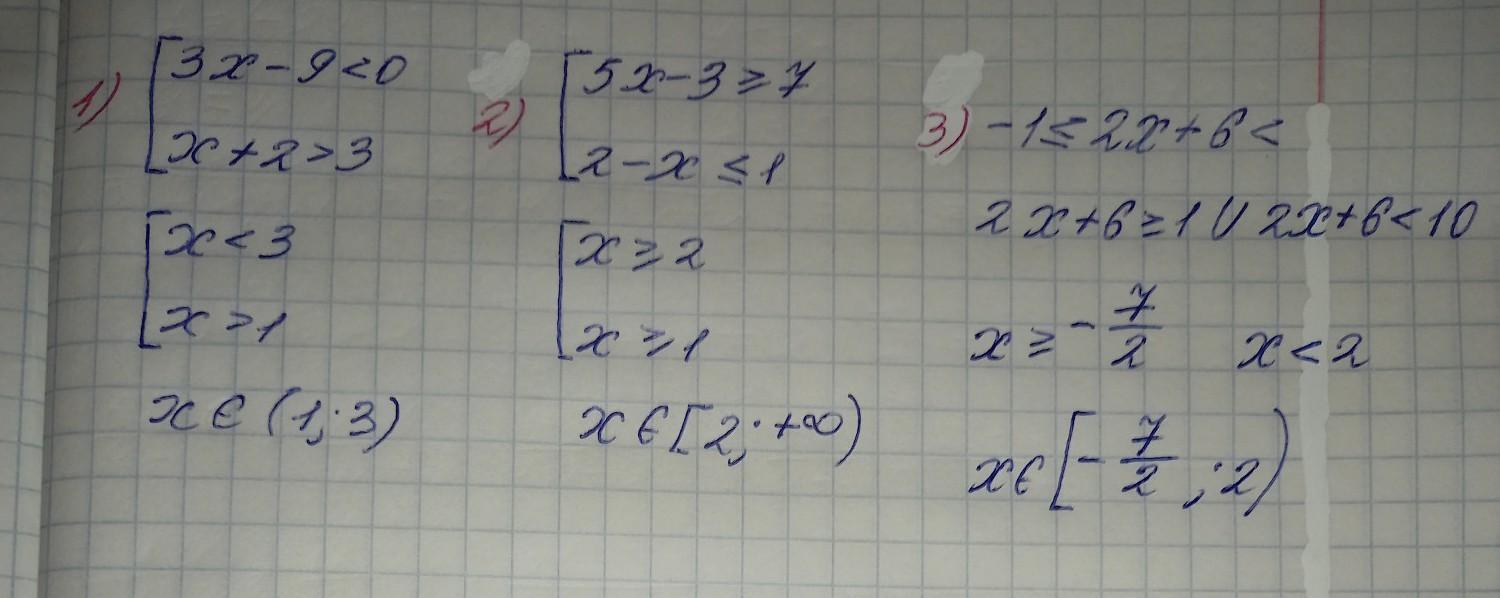 1) [3x-9<0
x+2>3
[x<3
x>1
x∈(1;3)
2) [5x-3≥7
2-x≤1
[x≥2
x≥1
x∈[2;+∞)
3) -1≤2x+6<
2x+6≥1∪2x+6<10
x≥-7/2 x<2
x∈[-7/2;2)